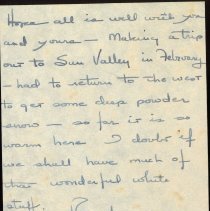 Hope all is well with you
and yours – Making a trip
out to Sun Valley in February
– had to return to the west
to get some deep powder
snow – so far it is so
warm here I doubt if
we shall have much of
that wonderful white
stuff.